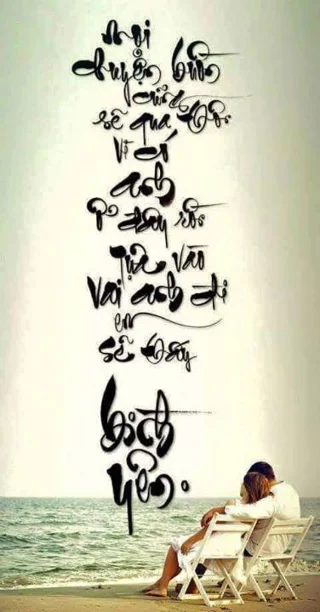 Mọi
chuyện buồn
cũng
sẽ qua thôi
Vì có
anh
ở đây rồi
Tựa vào
Vai anh đi
em
sẽ thấy
bình
yên.